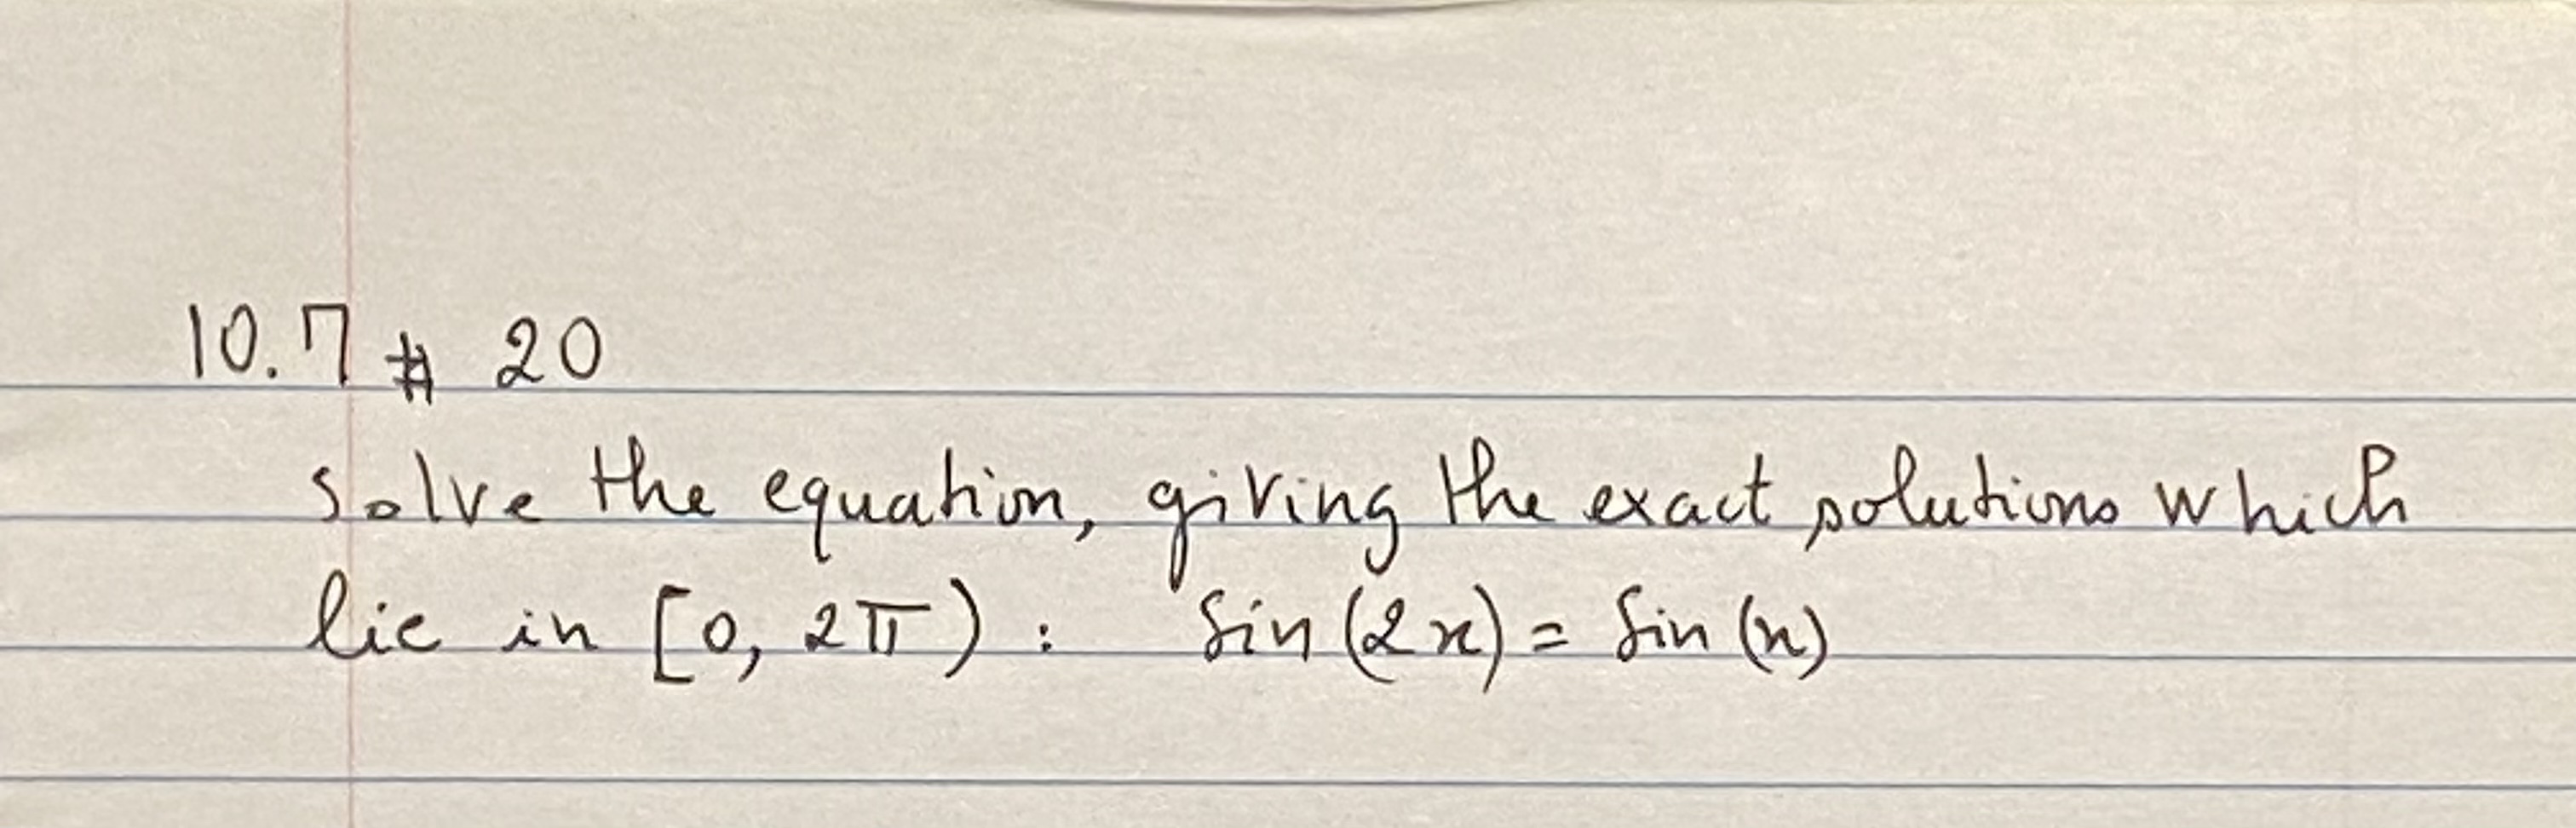 10.7 # 20
solve the equation, giving the exact solutions which
lie in [0, 2π) : sin(2x) = sin(x)